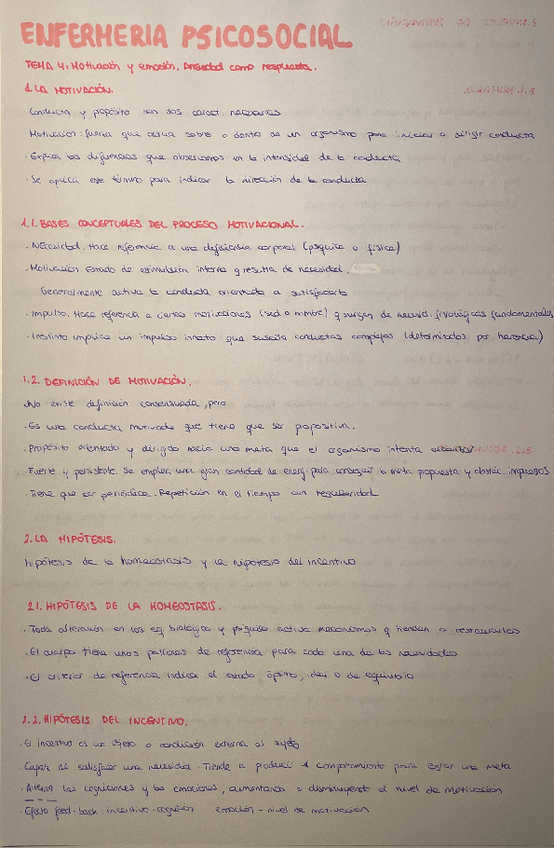 ENFERMERIA PSICOSOCIAL
TEMA 4: Motivación y emoción. Ansiedad como respuesta.
1. LA MOTIVACIÓN.
Conducta y propósito son dos caract. necesarias
Motivación: fuerza que actua sobre o dentro de un organismo para iniciar o dirigir conducta
· Explica las diferencias que observamos en la intensidad de la conducta
· Se aplica ese término para indicar la dirección de la conducta
1.1. BASES CONCEPTUALES DEL PROCESO MOTIVACIONAL.
· Necesidad. Hace referencia a una deficiencia corporal (psíquica o física)
· Motivación Estado de estimulación interna q resulta de necesidad.
Generalmente activa la conducta orientada a satisfacerla
· Impulso. Hace referencia a ciertas motivaciones (sed o hambre) q surgen de necesid. fisiológicas fundamentales
· Instinto implica un impulso innato que suscita conductas complejas (determinados por herencia)
1.2. DEFINICIÓN DE MOTIVACIÓN.
No existe definición consensuada, pero
· Es una conducta motivada que tiene que ser propositiva.
· Propósito orientado y dirigido hacia una meta que el organismo intenta
· Fuerte y persistente. Se emplea una gran cantidad de energ. para conseguir la meta propuesta y
Tiene que ser periódica. Repetición en el tiempo con regularidad
2. LA HIPÓTESIS.
Hipótesis de la homeostasis y la hipótesis del incentivo
2.1. HIPÓTESIS DE LA HOMEOSTASIS.
· Toda alteración en los eq. biológico y psíquico activa mecanismos q tienden a restaurarlos
· El cuerpo tiene unos patrones de referencia para cada una de las necesidades
· El criterio de referencia indica el estado óptimo, de equilibrio
2.2. HIPÓTESIS DEL INCENTIVO.
· El incentivo es un objeto o condición externa al sujeto
· Capaz de satisfacer una necesidad. Tiende a producir comportamiento para lograr una meta
· Altera las cogniciones y las emociones, aumentando o disminuyendo el nivel de motivación
· Efecto feed-back incentivo-cognición emoción - nivel de motivación